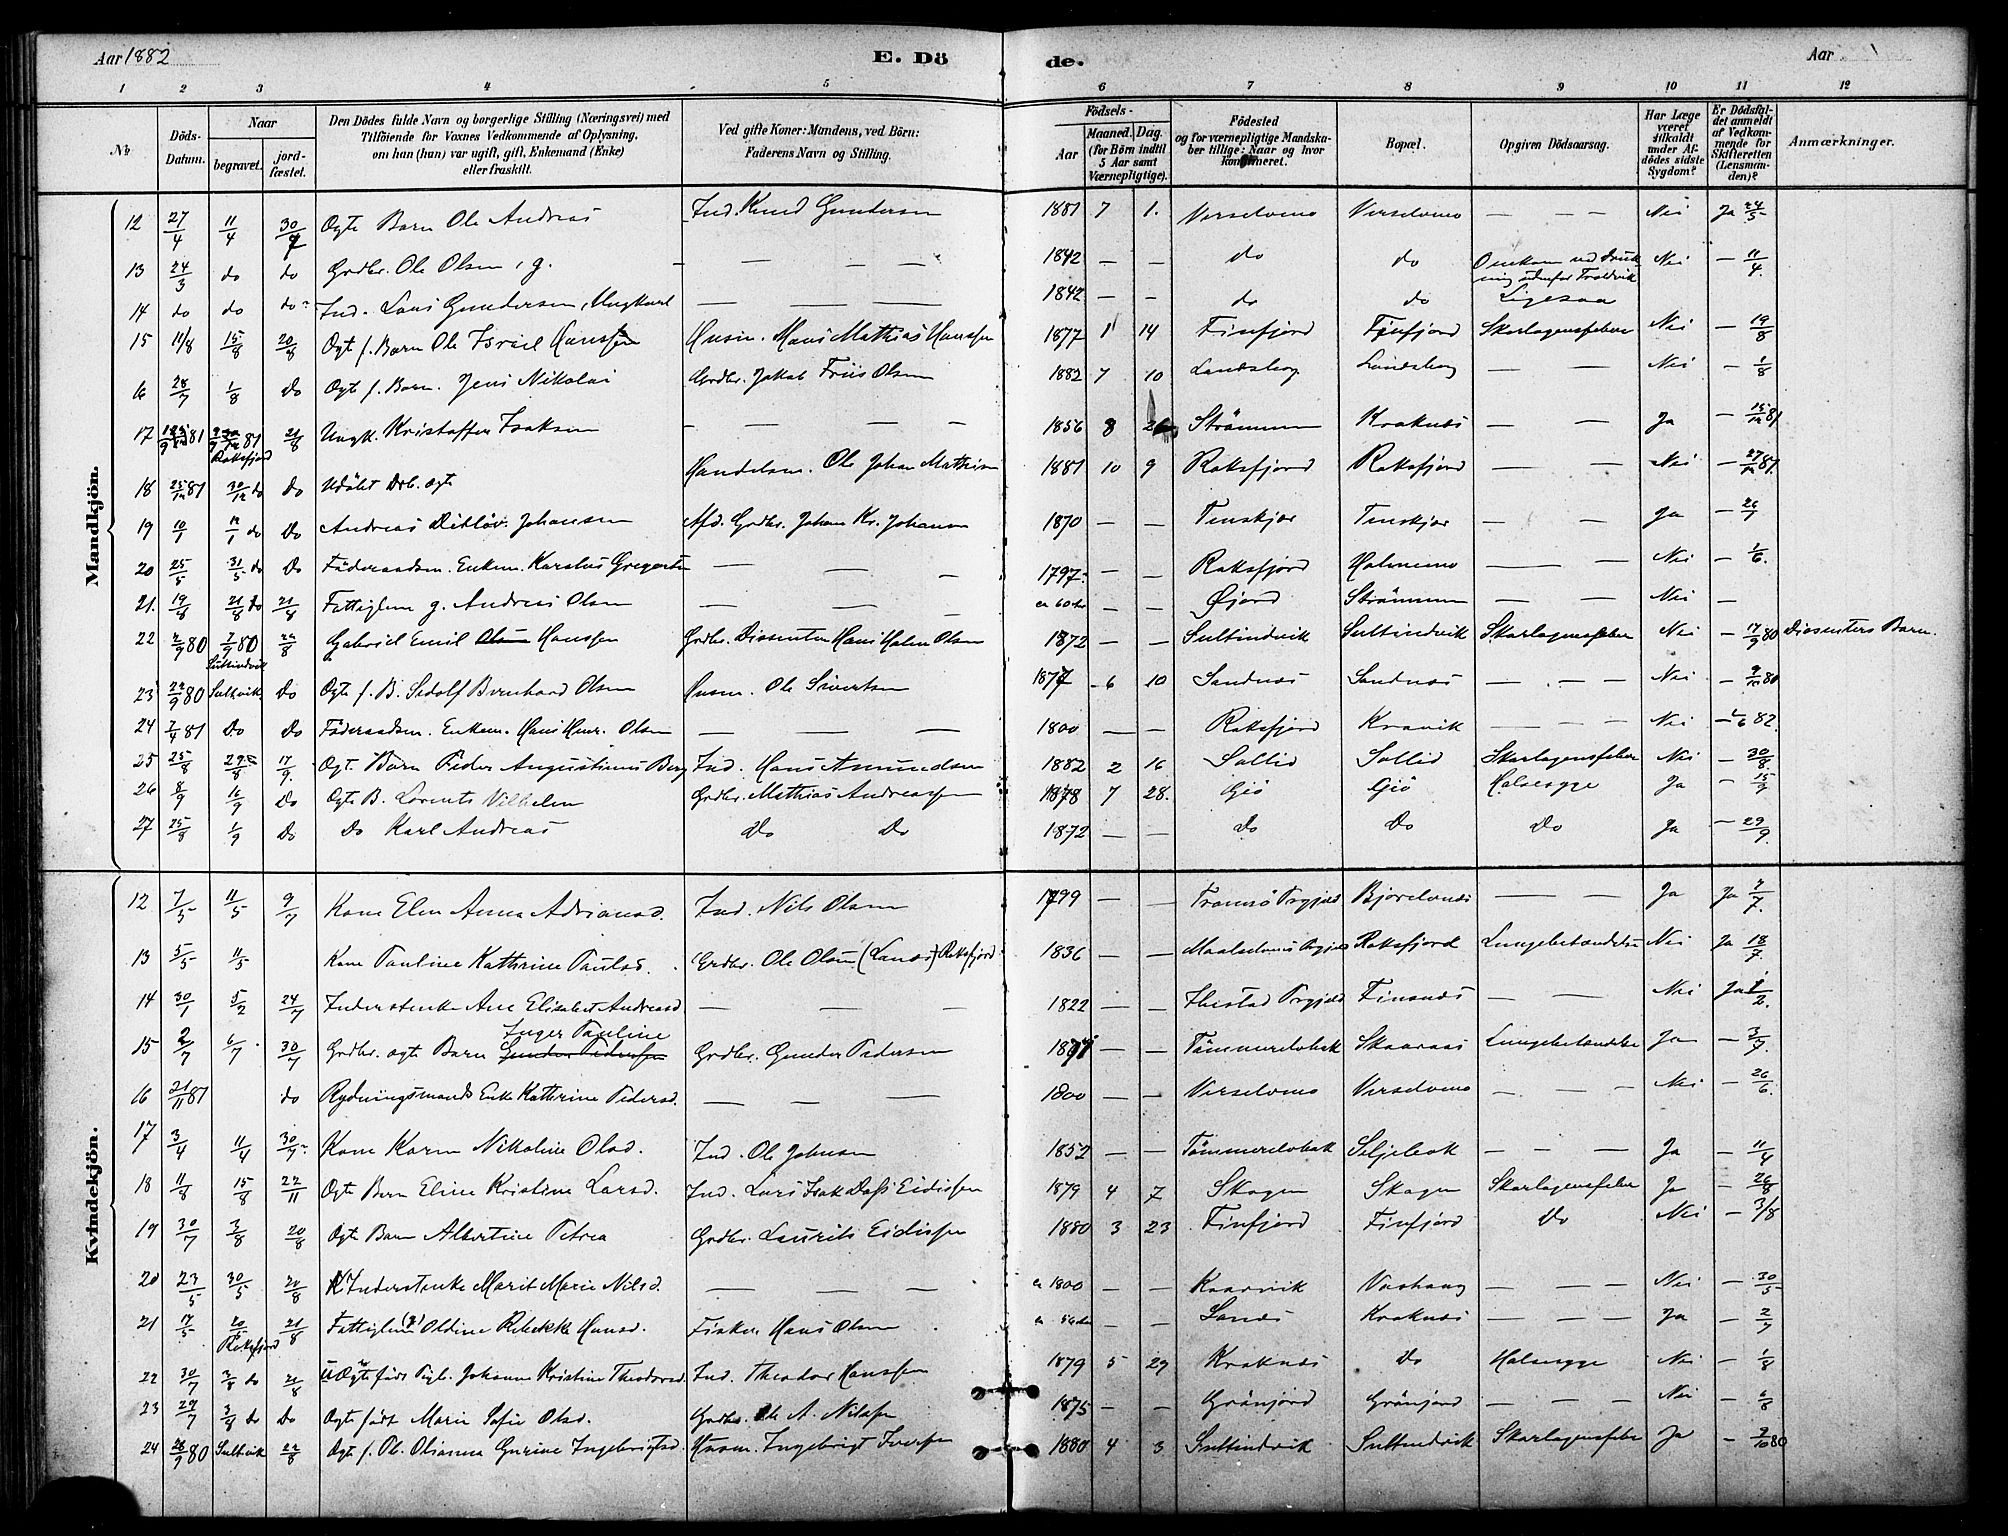 Aar 1882 E. Döde. Aar
1 2 3 4 5 6 7 8 9 10 11 12
No
Döds-Datum.
Naar
begravet.
jordfæstet.
Den Dödes fulde Navn og borgerlige Stilling (Næringsvei) med
Tilföiende for Voxnes Vedkommende af Oplysning,
om han (hun) var ugift, gift, Enkemand (Enke)
eller fraskilt.
Ved gifte Koner: Mandens, ved Börn:
Faderens Navn og Stilling.
Födsels-
Aar
Maaned. Dag.
(for Börn indtil
5 Aar samt
Værnepligtige).
Födested
og for værnepligtige Mandskaber tillige: Naar og hvor
konfirmeret.
Bopæl.
Opgiven Dödsaarsag.
Har Læge
været
tilkaldt
under Afdödes sidste
Sygdom?
Er Dödsfaldet anmeldt
af Vedkommende for
Skifteretten
(Lensmanden)?
Anmærkninger.
Mandkjön.
12 27/4 11/4 30/7 Ogte Barn Ole Andreas Ind. Knud Gundersen 1881 7 1. — — — Nei Ja 24/5
13 24/3 do do Grdbr. Ole Olsen, g. — — — — 1842 — — do do Nei — 11/4
14 do do do Ind. Lars Gundersen, Ungkarl — — — 1842 — — do do Ligesaa
15 11/8 15/8 20/8 Ogt f. Barn Ole Israel Hanssen Husm. Hans Mathias Hanssen 1877 1 14 Finfjord Finfjord Skarlagensfeber Nei — 19/8
6 28/7 1/8 Do Ogt f. Barn. Jens Nikolai Grdbr. Jakob Friis Olsen 1882 7 10 Landsborg Landsborg — — Nei — 1/8
17 81 81 21/8 Ungk. Kristoffer Isaksen — — — — 1856 8 Strömmen Kraknæs — — Ja — 15/12 81
Rossfjord
18 25/12 81 30/12 do Do Udöbt Drb. ogt Handelsm. Ole Johan Mathisen 1881 10 9 — — Nei — 27/12 81
19 10/1 12/1 do Do Andreas Ditlöv Johansen Afd. Grdbr. Johan Kr. Johansen 1870 — — Tenskjær Tenskjær — — Ja — 26/1
20 25/5 31/5 do Do Föderaadsm. Enkem. Karelius Gregersen — — — 1797 — — Holmemo — — Nei — 1/6
21. 19/8 21/8 do 21/8 Fattiglem g. Andreas Olsen — — — ca 60 Aar — — Öjord Strömmen — — Nei —
22 2/9 80 7/9 80 22/8 Gabriel Emil Hanssen Grdbr. Dissenter Hans Holm Olsen 1872 — — Sultindvik Sultindvik Skarlagensfeber Nei — 17/9 80 Dissenters Barn.
Sultindvik
23 22/9 80 Sultvik Do Ogt f. B. Sedolf Bernhard Olsen Husm. Ole Sivertsen 1877 6 10 Sandnæs Sandnæs — — — Nei — 9/10 80
24 7/4 81 Do Do Föderaadsm. Enkem. Hans Henr. Olsen — — — 1800 — — Kravik — — — Nei — 1/6 82.
25 25/8 29/8 17/9. Ogt. Barn Peder Augustinus Berg Ind. Hans Asmundsen 1882 2 16 Sollid Sollid Skarlagensfeber Nei — 30/8.
26 8/9 16/9 Do Ogte B. Lorents Vilhelm Grdbr. Mathias Andreassen 1878 7 28. Giö Giö Halssyge Ja — 15/9
27 25/8 1/9 Do Do Karl Andreas Do Do 1872 — — Do Do Do Ja — 29/9.
Kvindekjön.
12 7/5 11/5 9/7 Kone Elen Anna Adriansd. Ind. Nils Olsen 1799 — — Tromsö Prgjæld Bjorelvnæs — — Ja Ja 7/7.
13 5/5 11/5 Kone Pauline Kathrine Paulsd. Grdbr. Ole Olsen 1836 — — Maalselvens Prgjæld Lungebetændelse Nei Ja 18/7.
14 30/1 5/2 24/7 Inderstenke Ane Elisabet Andreasd — — — 1822 — — Ibestad Prgjæld Finsnæs — — — Nei Ja 1/2.
Inger Pauline
15 2/7 6/7 30/7 Grdbr. ogte Barn Gunder Pedersen Grdbr. Gunder Pedersen — — Tömmerelvbak Skaaraas Lungebetændelse Ja — 3/7.
16 21/11 81 do Rydningsmands Enke Kathrine Pedersd. — — — 1800 — — — — — Nei — 26/6.
17 3/4 11/4 30/7 Kone Karen Nikoline Olsd. Ind. Ole Johnsen 1852 — — Tömmerelvbak — — — Ja — 11/4
18 11/8 15/8 22/11 Ogte Barn Eline Kristine Larsd. Ind. Lars Isak Dass Eidissen 1879 4 7 Skogen Skogen Skarlagensfeber Ja — 26/8
19 30/7 3/8 20/8 Ogt. Barn Albertine Petrea Grdbr. Laurits Eidissen 1880 3 23 Finfjord Finfjord Do Nei — 3/8
20 23/5 30/5 20/8 Inderstenke Marit Marie Nilsd. — — — ca 1800 — — Kaarvik Vashaug — — — Nei — 30/5
21 17/5 20/5 21/8 Fattiglem (g) Oldine Rebekke Hansd. Fisker Hans Olsen ca 56 Aar — — Sandö Kraknæs — — — Ja — 2/7
22 30/7 3/8 do 21/8 Ogte födt Pige Johanne Kristine Theodorsd. Ind. Theodor Hanssen 1879 5 29 Kraknæs Do Halssyge Nei — 1/8
23 29/7 3/8 do Do Ogte födt Marie Sofie Olsd. Grdbr. Ole A. Nilssen 1875 — — Grönjord Grönjord — — — Nei — 6/8
24 28/9 80 Sultvik 22/8 Ogt f. B. Olianna Gurine Ingebrigtsd. Husm. Ingebrigt Iversen 1880 4 3 Sultindvik Sultindvik Skarlagensfeber Ja — 7/10 80